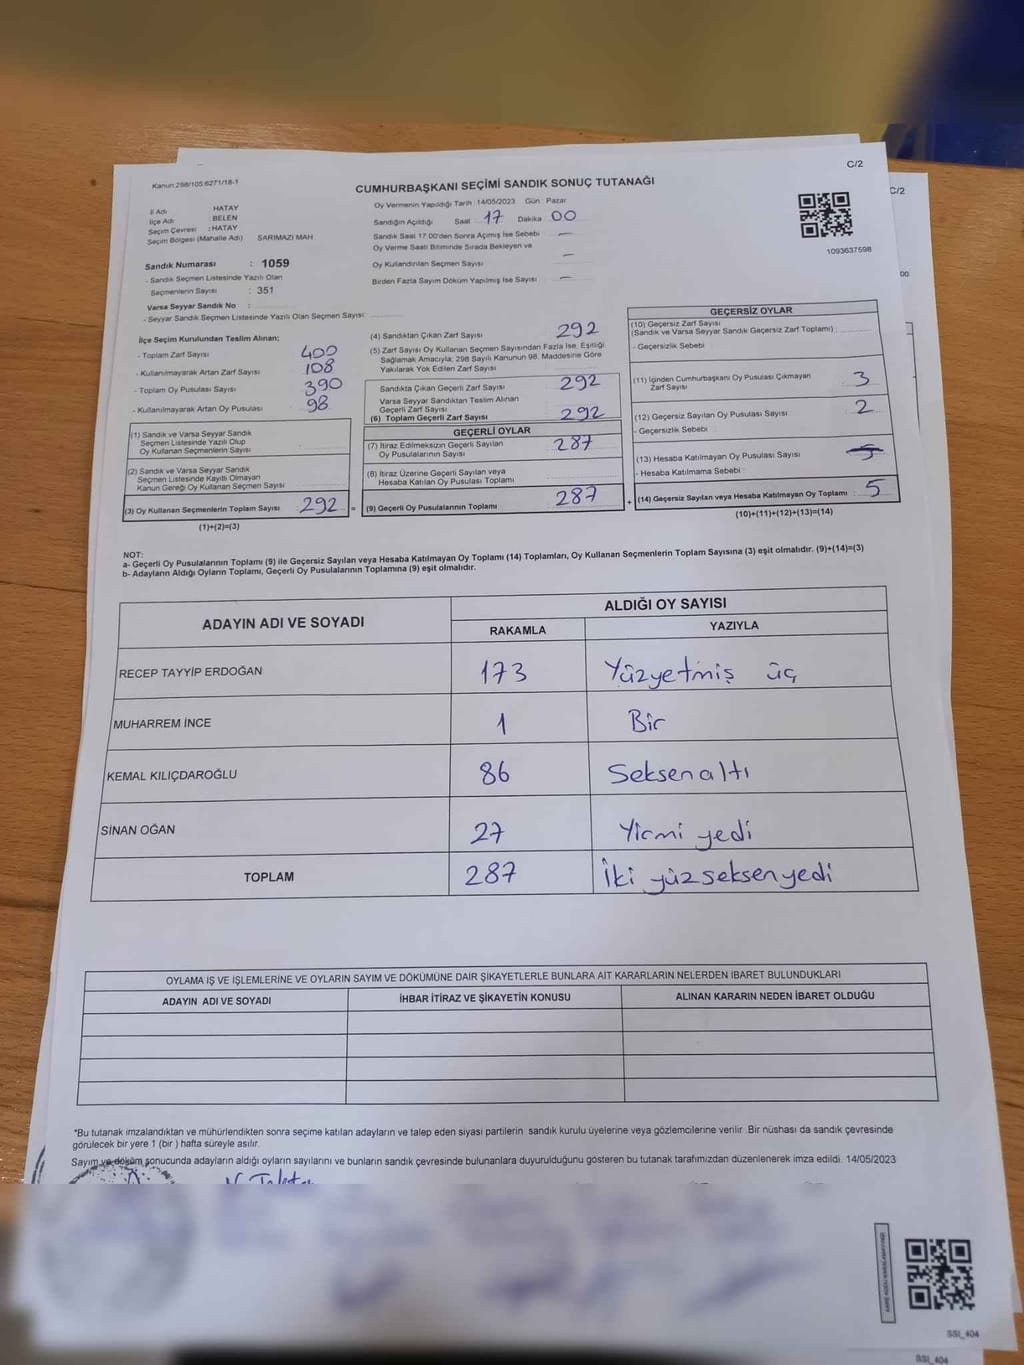 C/2
Kanun 298/105 6271/18-1
CUMHURBAŞKANI SEÇİMİ SANDIK SONUÇ TUTANAĞI
İl Adı HATAY
İlçe Adı BELEN
Seçim Çevresi : HATAY
Seçim Bölgesi (Mahalle Adı) SARIMAZI MAH
Sandık Numarası : 1059
- Sandık Seçmen Listesinde Yazılı Olan
Seçmenlerin Sayısı : 351
Varsa Seyyar Sandık No :
- Seyyar Sandık Seçmen Listesinde Yazılı Olan Seçmen Sayısı
Oy Vermenin Yapıldığı Tarih : 14/05/2023 Gün : Pazar
Sandığın Açıldığı Saat 17 Dakika 00
Sandık Saat 17.00'den Sonra Açımış İse Sebebi —
Oy Verme Saati Bitiminde Sırada Bekleyen ve
Oy Kullandırılan Seçmen Sayısı —
Birden Fazla Sayım Döküm Yapılmış İse Sayısı —
1093637598
C/2
00
İlçe Seçim Kurulundan Teslim Alınan:
- Toplam Zarf Sayısı 400
- Kullanılmayarak Artan Zarf Sayısı 108
- Toplam Oy Pusulası Sayısı 390
- Kullanılmayarak Artan Oy Pusulası 98
(1) Sandık ve Varsa Seyyar Sandık
Seçmen Listesinde Yazılı Olup
Oy Kullanan Seçmenlerin Sayısı
(2) Sandık ve Varsa Seyyar Sandık
Seçmen Listesinde Kayıtlı Olmayan
Kanun Gereği Oy Kullanan Seçmen Sayısı
(3) Oy Kullanan Seçmenlerin Toplam Sayısı 292 =
(1)+(2)=(3)
(4) Sandıktan Çıkan Zarf Sayısı 292
(5) Zarf Sayısı Oy Kullanan Seçmen Sayısından Fazla İse, Eşitliği
Sağlamak Amacıyla; 298 Sayılı Kanunun 98. Maddesine Göre
Yakılarak Yok Edilen Zarf Sayısı
Sandıkta Çıkan Geçerli Zarf Sayısı 292
Varsa Seyyar Sandıktan Teslim Alınan
Geçerli Zarf Sayısı
(6) Toplam Geçerli Zarf Sayısı 292
GEÇERLİ OYLAR
(7) İtiraz Edilmeksizin Geçerli Sayılan
Oy Pusulalarının Sayısı 287
(8) İtiraz Üzerine Geçerli Sayılan veya
Hesaba Katılan Oy Pusulası Toplamı
(9) Geçerli Oy Pusulalarının Toplamı 287 +
GEÇERSİZ OYLAR
(10) Geçersiz Zarf Sayısı
(Sandık ve Varsa Seyyar Sandık Geçersiz Zarf Toplamı) :
- Geçersizlik Sebebi
(11) İçinden Cumhurbaşkanı Oy Pusulası Çıkmayan
Zarf Sayısı 3
(12) Geçersiz Sayılan Oy Pusulası Sayısı 2
- Geçersizlik Sebebi :
(13) Hesaba Katılmayan Oy Pusulası Sayısı
- Hesaba Katılmama Sebebi :
(14) Geçersiz Sayılan veya Hesaba Katılmayan Oy Toplamı : 5
(10)+(11)+(12)+(13)=(14)
NOT:
a- Geçerli Oy Pusulalarının Toplamı (9) ile Geçersiz Sayılan veya Hesaba Katılmayan Oy Toplamı (14) Toplamları, Oy Kullanan Seçmenlerin Toplam Sayısına (3) eşit olmalıdır. (9)+(14)=(3)
b- Adayların Aldığı Oyların Toplamı, Geçerli Oy Pusulalarının Toplamına (9) eşit olmalıdır.
ADAYIN ADI VE SOYADI ALDIĞI OY SAYISI
RAKAMLA YAZIYLA
RECEP TAYYİP ERDOĞAN 173 Yüzyetmiş üç
MUHARREM İNCE 1 Bir
KEMAL KILIÇDAROĞLU 86 Seksenaltı
SİNAN OĞAN 27 Yirmi yedi
TOPLAM 287 İki yüzseksenyedi
OYLAMA İŞ VE İŞLEMLERİNE VE OYLARIN SAYIM VE DÖKÜMÜNE DAİR ŞİKAYETLERLE BUNLARA AİT KARARLARIN NELERDEN İBARET BULUNDUKLARI
ADAYIN ADI VE SOYADI İHBAR İTİRAZ VE ŞİKAYETİN KONUSU ALINAN KARARIN NEDEN İBARET OLDUĞU
*Bu tutanak imzalandıktan ve mühürlendikten sonra seçime katılan adayların ve talep eden siyasi partilerin sandık kurulu üyelerine veya gözlemcilerine verilir .Bir nüshası da sandık çevresinde
görülecek bir yere 1 (bir ) hafta süreyle asılır.
Sayım ve döküm sonucunda adayların aldığı oyların sayılarını ve bunların sandık çevresinde bulunanlara duyurulduğunu gösteren bu tutanak tarafımızdan düzenlenerek imza edildi. 14/05/2023
SSI_404
SSI_404